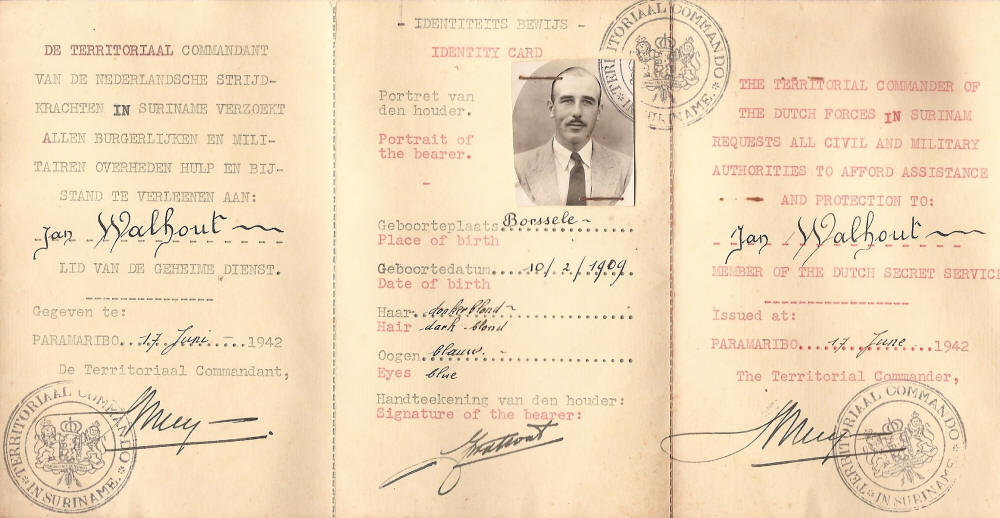 DE TERRITORIAAL COMMANDANT
VAN DE NEDERLANDSCHE STRIJD-
KRACHTEN IN SURINAME VERZOEKT
ALLEN BURGERLIJKEN EN MILI-
TAIREN OVERHEDEN HULP EN BIJ-
STAND TE VERLEENEN AAN:
Jan Walhout
LID VAN DE GEHEIME DIENST.
Gegeven te:
PARAMARIBO...17 Juni...1942
De Territoriaal Commandant,
TERRITORIAAL COMMANDO
* IN SURINAME. *
- IDENTITEITS BEWIJS -
IDENTITY CARD
Portret van
den houder.
Portrait of
the bearer.
-
Geboorteplaats Borssele
Place of birth
Geboortedatum....10/2/1909
Date of birth
Haar. donkerblond
Hair dark blond
Oogen. blauw.
Eyes blue
Handteekening van den houder:
Signature of the bearer:
JWalhout
TERRITORIAAL COMMANDO
* IN SURINAME. *
THE TERRITORIAL COMMANDER OF
THE DUTCH FORCES IN SURINAM
REQUESTS ALL CIVIL AND MILITARY
AUTHORITIES TO AFFORD ASSISTANCE
AND PROTECTION TO:
Jan Walhout
MEMBER OF THE DUTCH SECRET SERVICE
Issued at:
PARAMARIBO...17 June...1942
The Territorial Commander,
TERRITORIAAL COMMANDO
* IN SURINAME. *